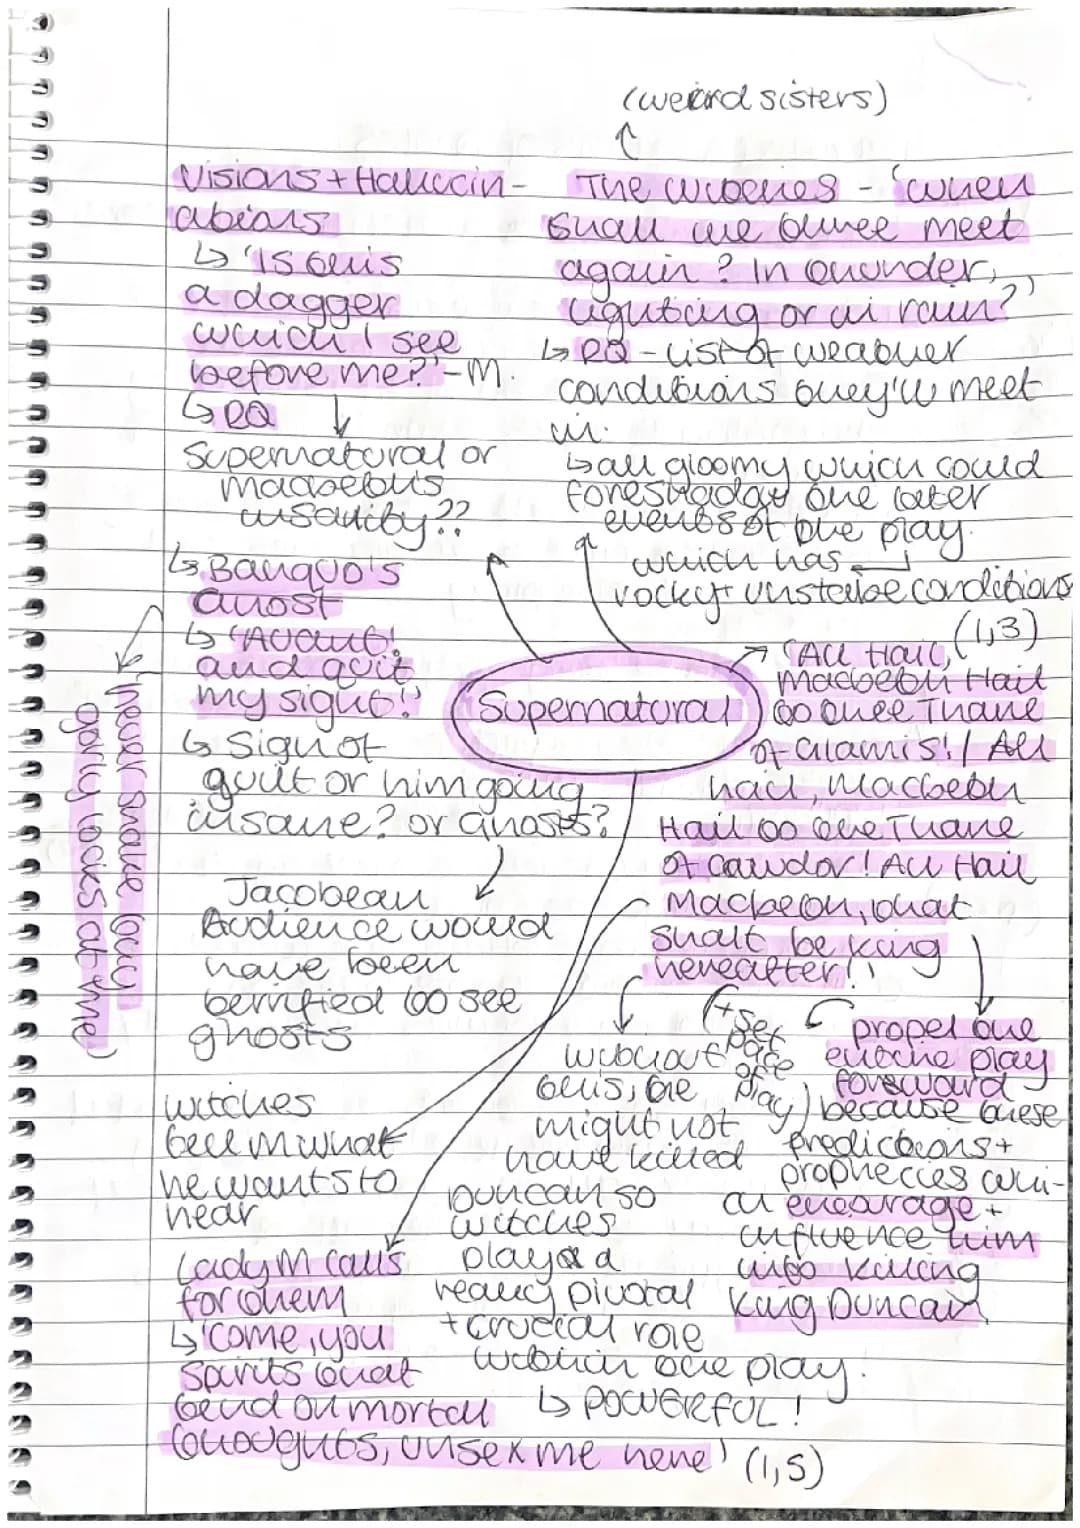 (weird sisters)
Visions + Hallucin-
ations
↳ 'Is this
a dagger
which I see
before me?' - M.
↳ RQ
Supernatural or
macbeth's
insanity??
↳ Banquo's
Ghost
↳ 'Avaunt!
and quit
my sight!'
↳ Sign of
guilt or him going
insane? or Ghosts?
Jacobean
Audience would
have been
terrified to see
ghosts
'never shake thy
gory locks at me'
The witches - 'when
shall we three meet
again? In thunder,
lightning or in rain?'
↳ RQ - list of weather
conditions they'll meet
in.
↳ all gloomy which could
foreshadow the later
events of the play.
which has
rocky + unstable conditions
Supernatural
(1,3)
'All Hail,
Macbeth Hail
to thee Thane
of Glamis! / All
hail, Macbeth
Hail to thee Thane
of Cawdor! All Hail
Macbeth, that
shalt be king
hereafter!'
(+ set
pace
of
play)
propel the
entire play
forward
because these
predictions +
prophecies wi-
ll encourage +
influence him
into killing
King Duncan
without
this, he
might not
have killed
Duncan so
witches
play a
really pivotal
+ crucial role
within the play.
↳ POWERFUL!
witches
tell M what
he wants to
hear
Lady M calls
for them
↳ 'Come, you
spirits that
tend on mortal
thoughts, unsex me here' (1,5)